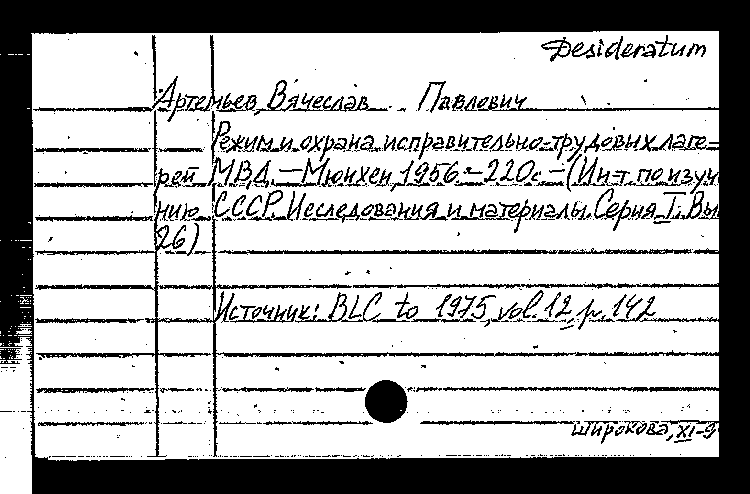 Desideratum
Артемьев, Вячеслав Павлович
Режим и охрана исправительно-трудовых лаге-
рей МВД. — Мюнхен, 1956. — 220 с. — (Ин-т по изуч
нию СССР. Исследования и материалы. Серия I. Вы
26)
Источник: BLC to 1975, vol. 12, p. 142
Широкова, XI-9